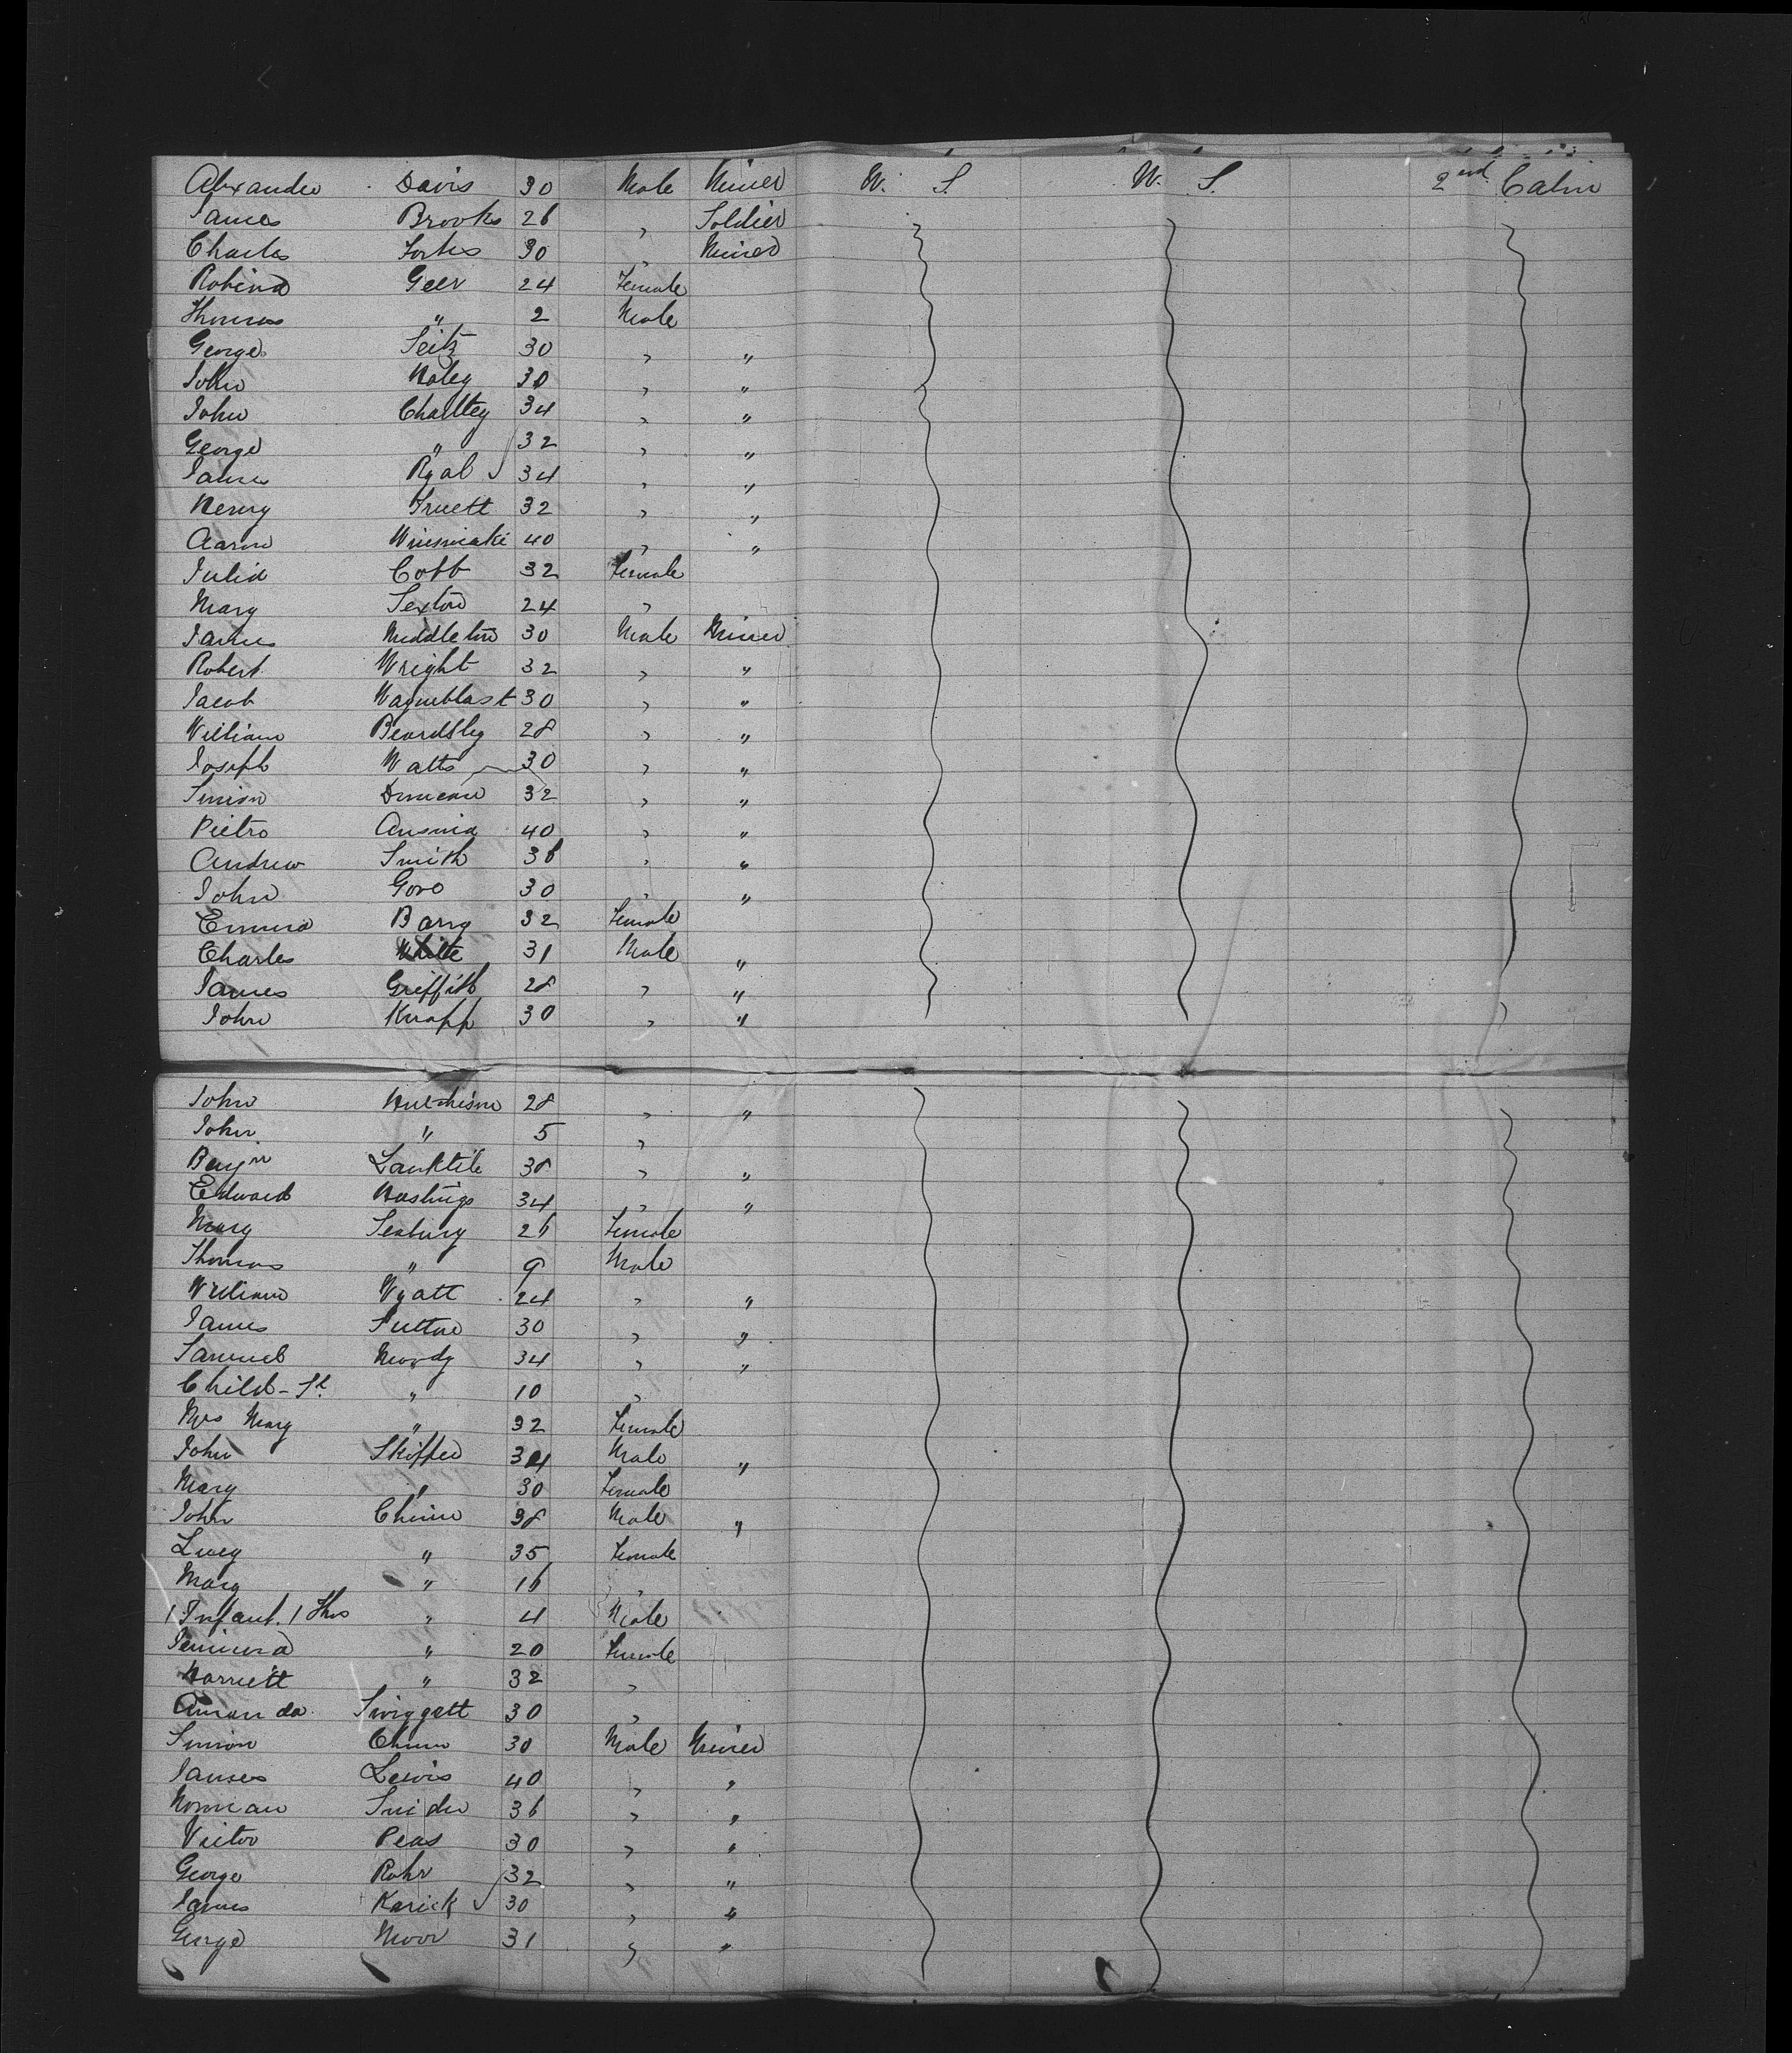 Alexander Davis 30 Male Miner U. S. U. S. 2nd Cabin
James Brooks 26 " Soldier
Charles Forbes 30 " Miner
Robina Geer 24 Female
Thomas " 2 Male
George Seitz 30 " "
John Haley 30 " "
John Chattey 34 " "
George " 32 " "
James Ryal 34 " "
Henry Truett 32 " "
Aaron 40 " "
Julia Cobb 32 Female
Mary Sexton 24 "
James Middleton 30 Male Miner
Robert Wright 32 " "
Jacob Wagenblast 30 " "
William Beardsley 28 " "
Joseph Watts 30 " "
Simion Duncan 32 " "
Pietro Ansnia 40 " "
Andrew Smith 36 " "
John Goro 30 " "
Emma Barry 32 Female
Charles White 31 Male "
James Griffith 28 " "
John Knapp 30 " "
John Hutchison 28 " "
John " 5 "
Benjn Lanktile 38 " "
Edward Hastings 34 " "
Mary Seabury 26 Female
Thomas " 9 Male
William Wyatt 24 " "
James Sutton 30 " "
Samuel Moody 34 " "
Child - Sl " 10 "
Mrs Mary " 32 Female
John Skiffer 34 Male "
Mary " 30 Female
John Chinn 38 Male "
Lucy " 35 Female
Mary " 16 "
1 Infant. 1 Thos " 4 Male
Jemima " 20 Female
Harriett " 32 "
Amanda Swiggett 30 "
Simion Chinn 30 Male Miner
James Lewis 40 " "
Norman Snider 36 " "
Victor Peas 30 " "
George Rohr 32 " "
James Karick 30 " "
George Moor 31 " "